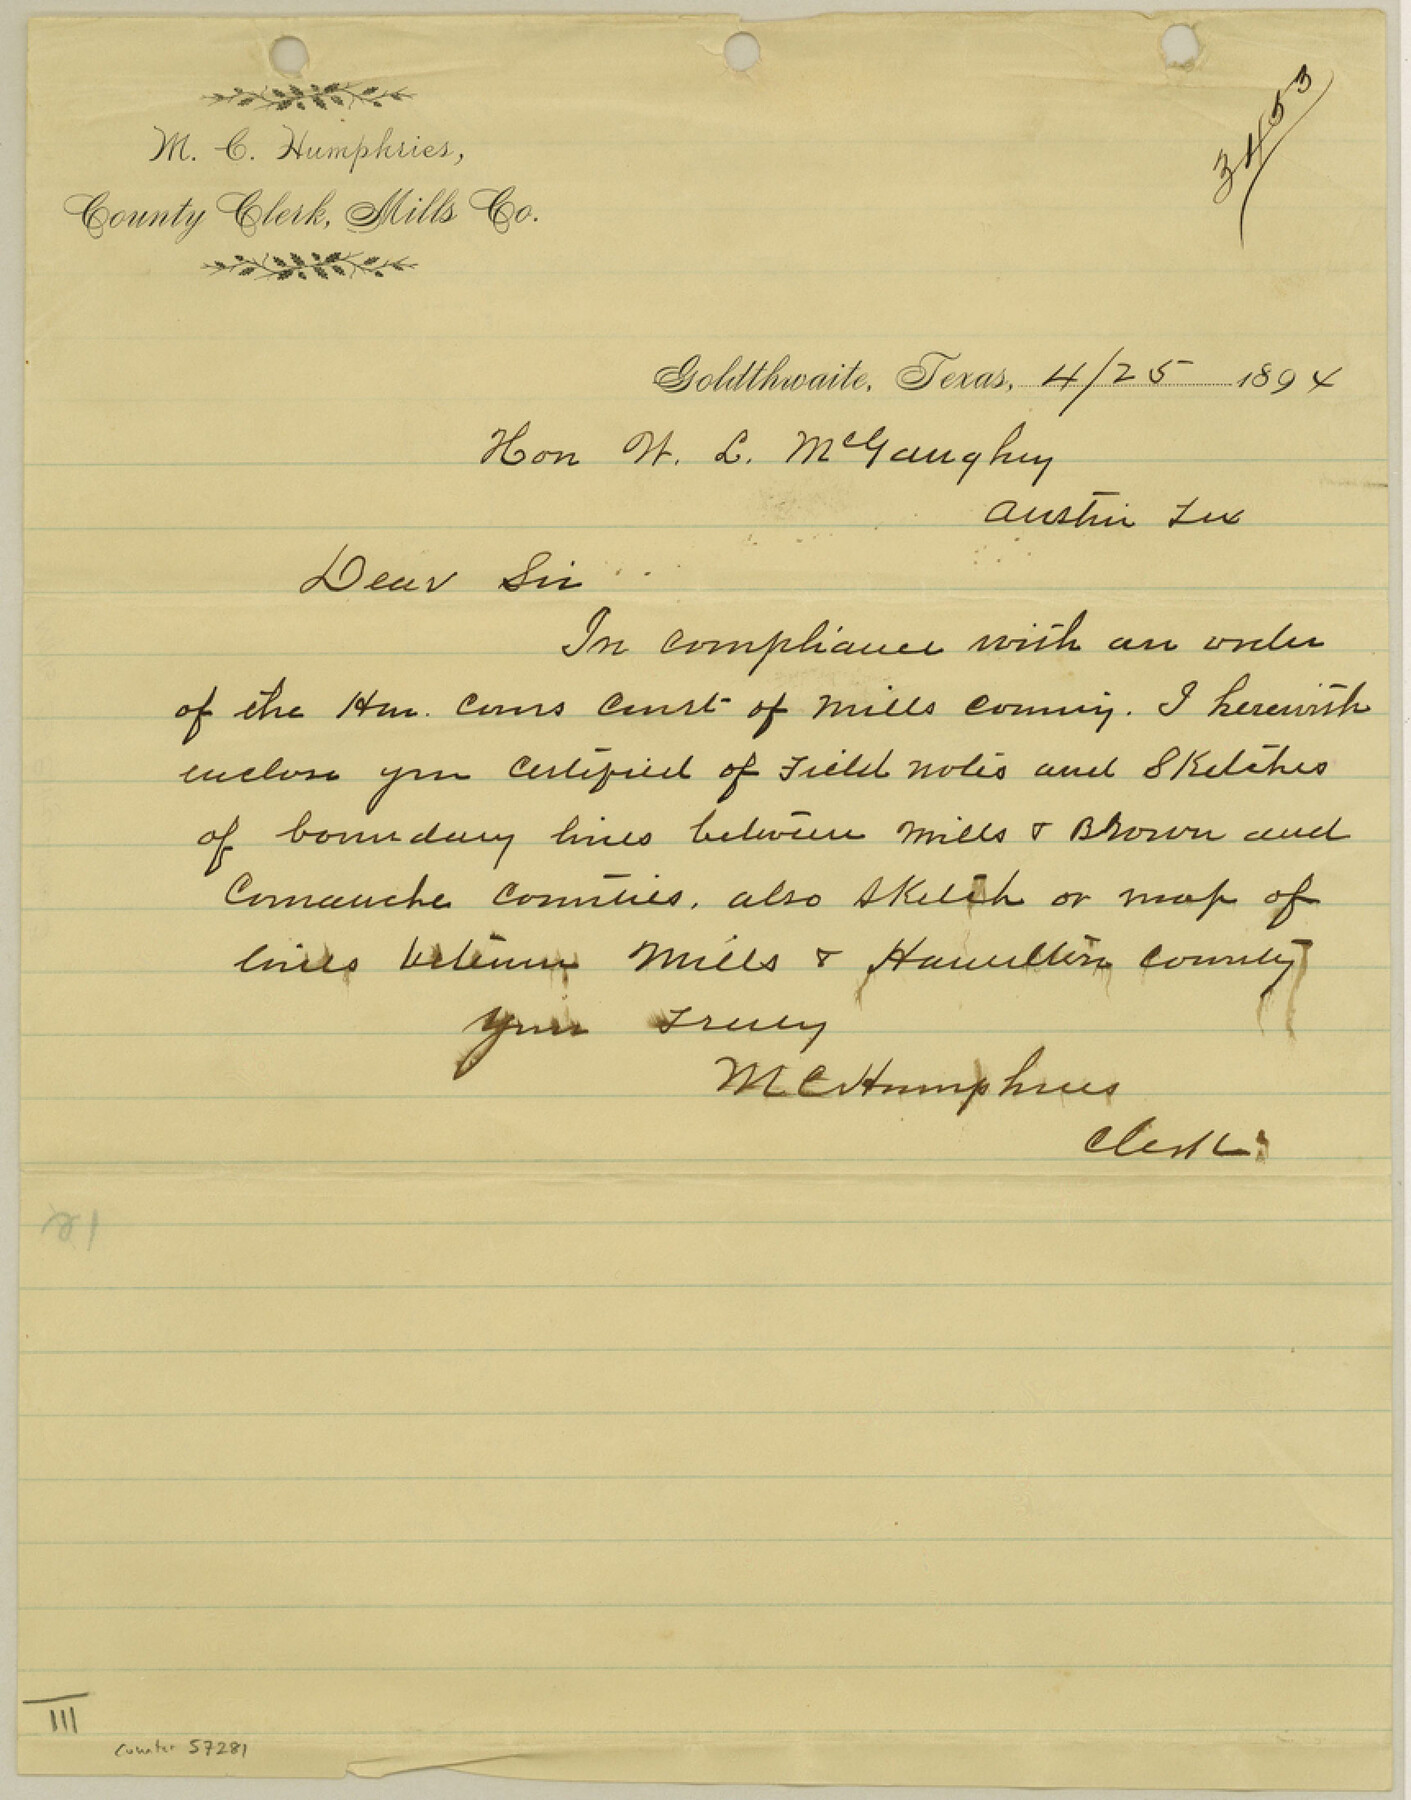 3453
M. C. Humphries,
County Clerk, Mills Co.
Goldthwaite, Texas, 4/25 1894
Hon W. L. McGaughey
Austin Tex
Dear Sir
In compliance with an order
of the Hon. Coms Court of Mills County. I herewith
enclose you certified of Field notes and Sketches
of boundary lines between Mills & Brown and
Comanche Counties. also sketch or map of
lines between Mills & Hamilton County
Yours Truly
M C Humphries
Clerk
III
Counter 57281